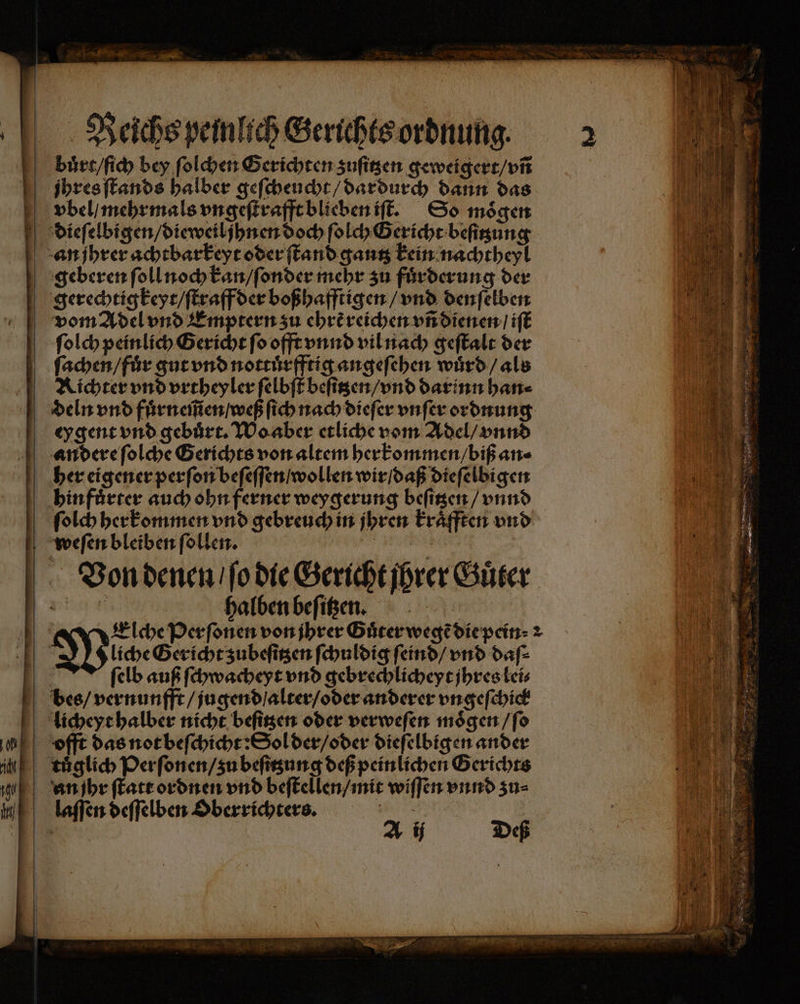 Reichs peinlich Gerichts ordnung. 2
bůrt/ſich bey ſolchen Gerichten zuſitzen geweigert/vñ
jhres ſtands halber geſcheucht/dardurch dann das
vbel/mehrmals vngeſtrafft blieben iſt. So mögen
dieſelbigen/dieweil jhnen doch ſolch Gericht beſitzung
an jhrer achtbarkeyt oder ſtand gantz kein nachtheyl
geberen ſoll noch kan/ſonder mehr zu fůrderung der
gerechtigkeyt/ſtraff der boßhafftigen/vnd denſelben
vom Adel vnd Emptern zu ehrẽ reichen vñ dienen/iſt
ſolch peinlich Gericht ſo offt vnnd vil nach geſtalt der
ſachen/fůr gut vnd nottůrfftig angeſehen wůrd/als
Richter vnd vrtheyler ſelbſt beſitzen/vnd darinn han⸗
deln vnd fůrnem̃en/weß ſich nach dieſer vnſer ordnung
eygent vnd gebůrt. Wo aber etliche vom Adel/vnnd
andere ſolche Gerichts von altem herkommen/biß an⸗
her eigener perſon beſeſſen/wollen wir/daß dieſelbigen
hinfůrter auch ohn ferner weygerung beſitzen/vnnd
ſolch herkommen vnd gebreuch in jhren kräfften vnd
weſen bleiben ſollen.
Von denen/ſo die Gericht jhrer Gůter
halben beſitzen.
WElche Perſonen von jhrer Gůter wegẽ die pein⸗ 2
liche Gericht zubeſitzen ſchuldig ſeind/vnd daſ⸗
ſelb auß ſchwacheyt vnd gebrechlicheyt jhres lei⸗
bes/vernunfft/jugend/alter/oder anderer vngeſchick
licheyt halber nicht beſitzen oder verweſen mögen/ſo
offt das not beſchicht: Sol der/oder dieſelbigen ander
tůglich Perſonen/zu beſitzung deß peinlichen Gerichts
an jhr ſtatt ordnen vnd beſtellen/mit wiſſen vnnd zu⸗
laſſen deſſelben Oberrichters.
A ij Deß